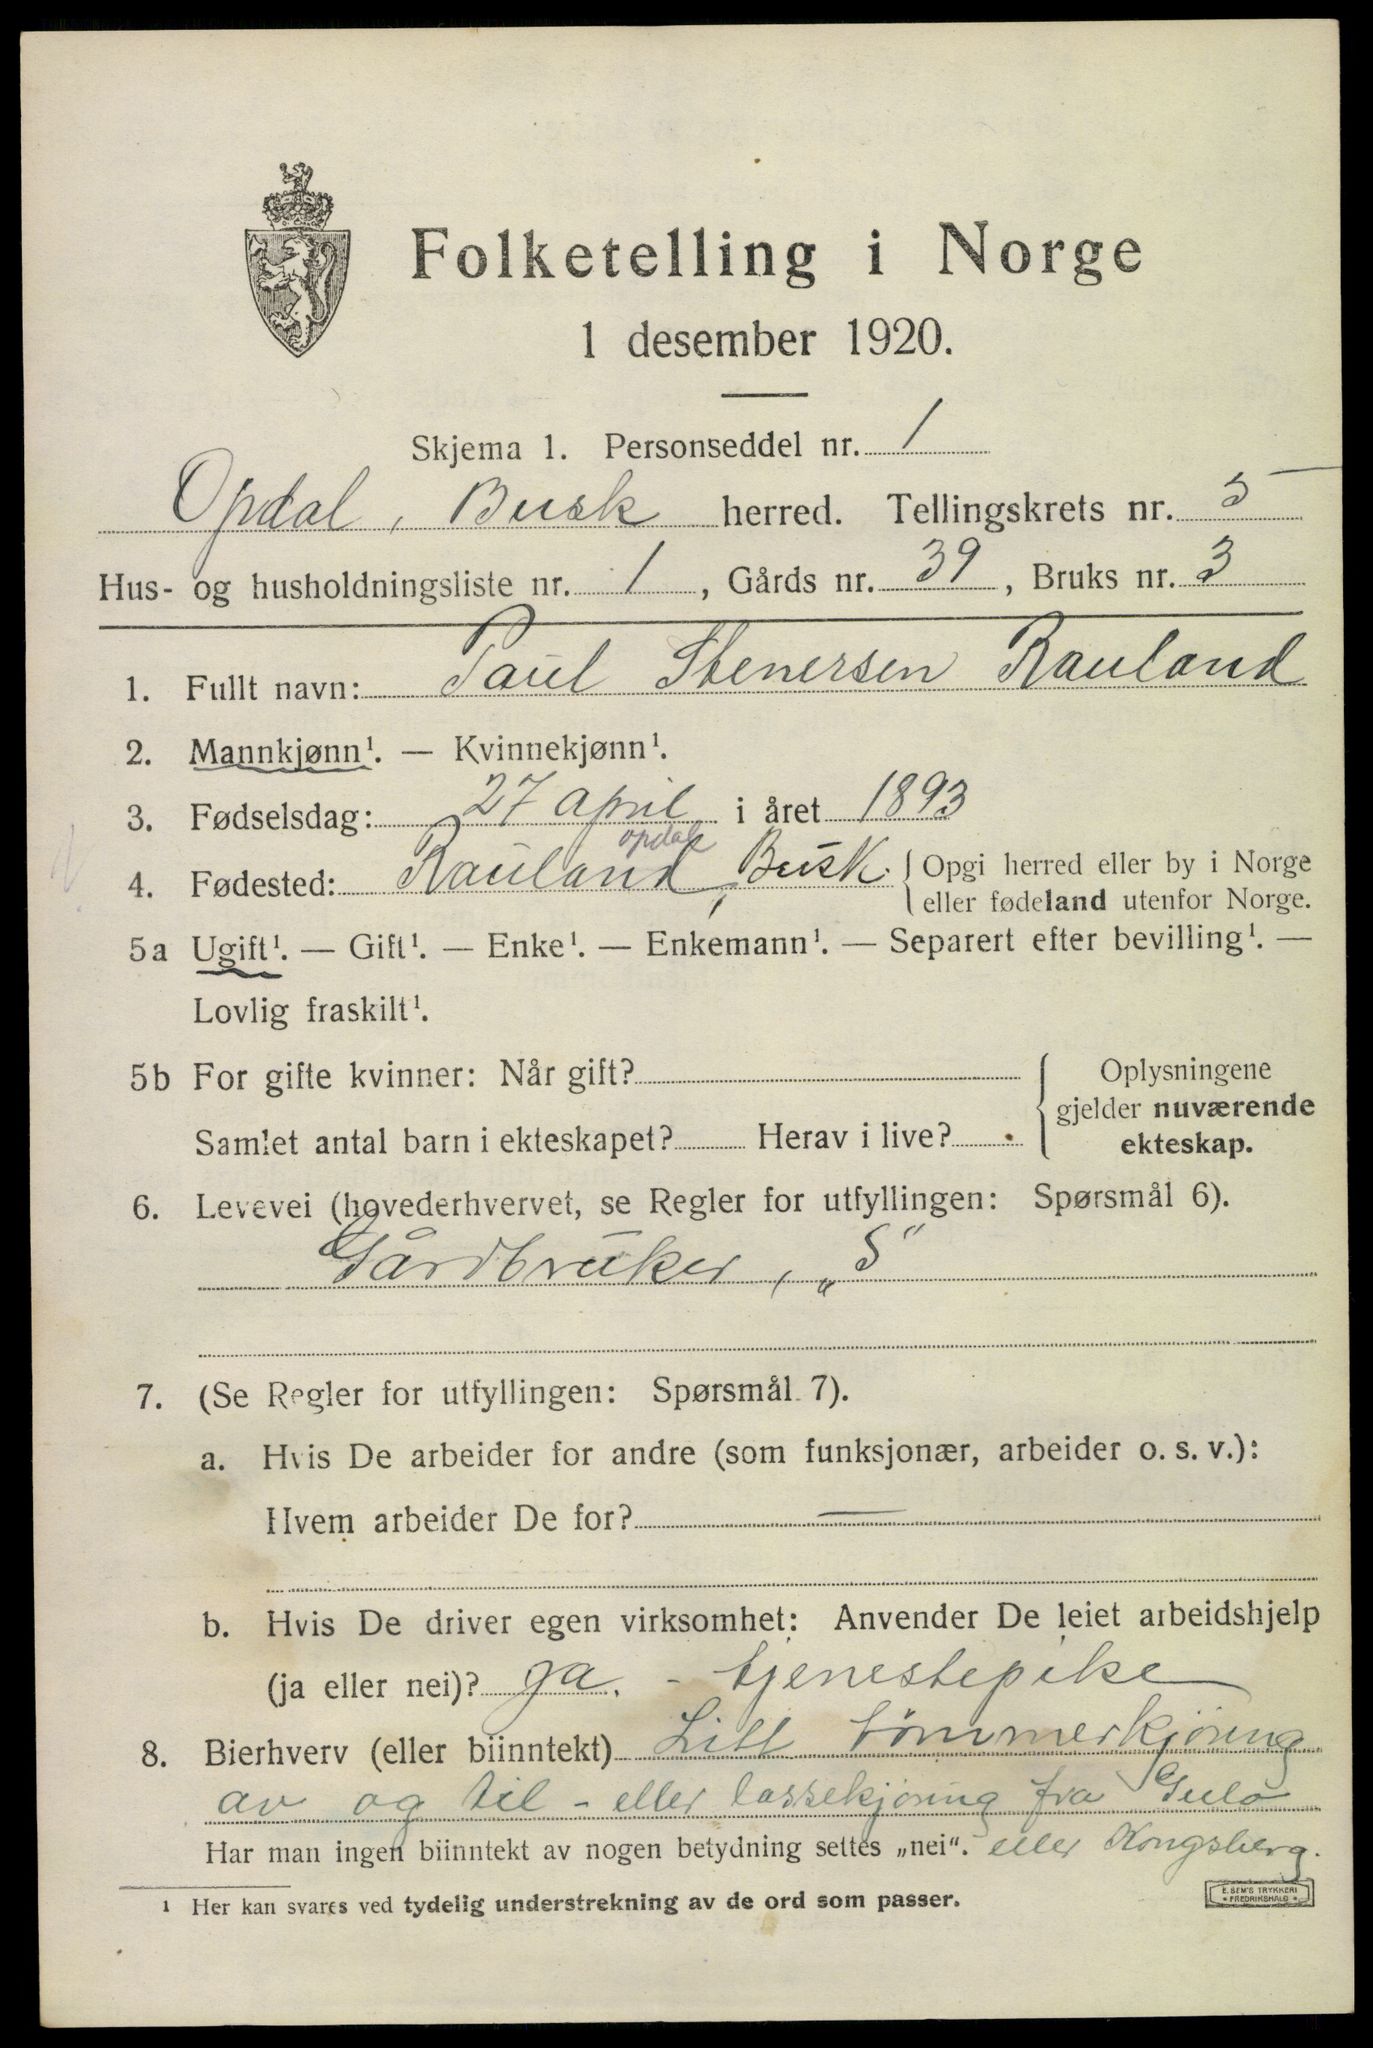 Folketelling i Norge
1 desember 1920.
Skjema 1. Personseddel nr. 1
Opdal, Busk herred. Tellingskrets nr. 5
Hus- og husholdningsliste nr. 1, Gårds nr. 39, Bruks nr. 3
1. Fullt navn: Paul Stenersen Rauland
2. Mannkjønn¹. — Kvinnekjønn¹.
3. Fødselsdag: 27 april i året 1893
opdal
4. Fødested: Rauland, Busk. { Opgi herred eller by i Norge
eller fødeland utenfor Norge.
5a Ugift¹. — Gift¹. — Enke¹. — Enkemann¹. — Separert efter bevilling¹. —
Lovlig fraskilt¹.
5b For gifte kvinner: Når gift? { Oplysningene
gjelder nuværende
Samlet antal barn i ekteskapet? Herav i live?
ekteskap.
6. Levevei (hovederhvervet, se Regler for utfyllingen: Spørsmål 6).
Gårdbruker, „S“
7. (Se Regler for utfyllingen: Spørsmål 7).
a. Hvis De arbeider for andre (som funksjonær, arbeider o. s. v.):
Hvem arbeider De for? —
b. Hvis De driver egen virksomhet: Anvender De leiet arbeidshjelp
(ja eller nei)? ja. - tjenestepike
8. Bierhverv (eller biinntekt) Litt tømmerkjøring
av og til - eller lassekjøring fra Gulo
Har man ingen biinntekt av nogen betydning settes „nei“. eller Kongsberg.
¹ Her kan svares ved tydelig understrekning av de ord som passer.
E. SEM'S TRYKKERI
* FREDRIKSHALD *